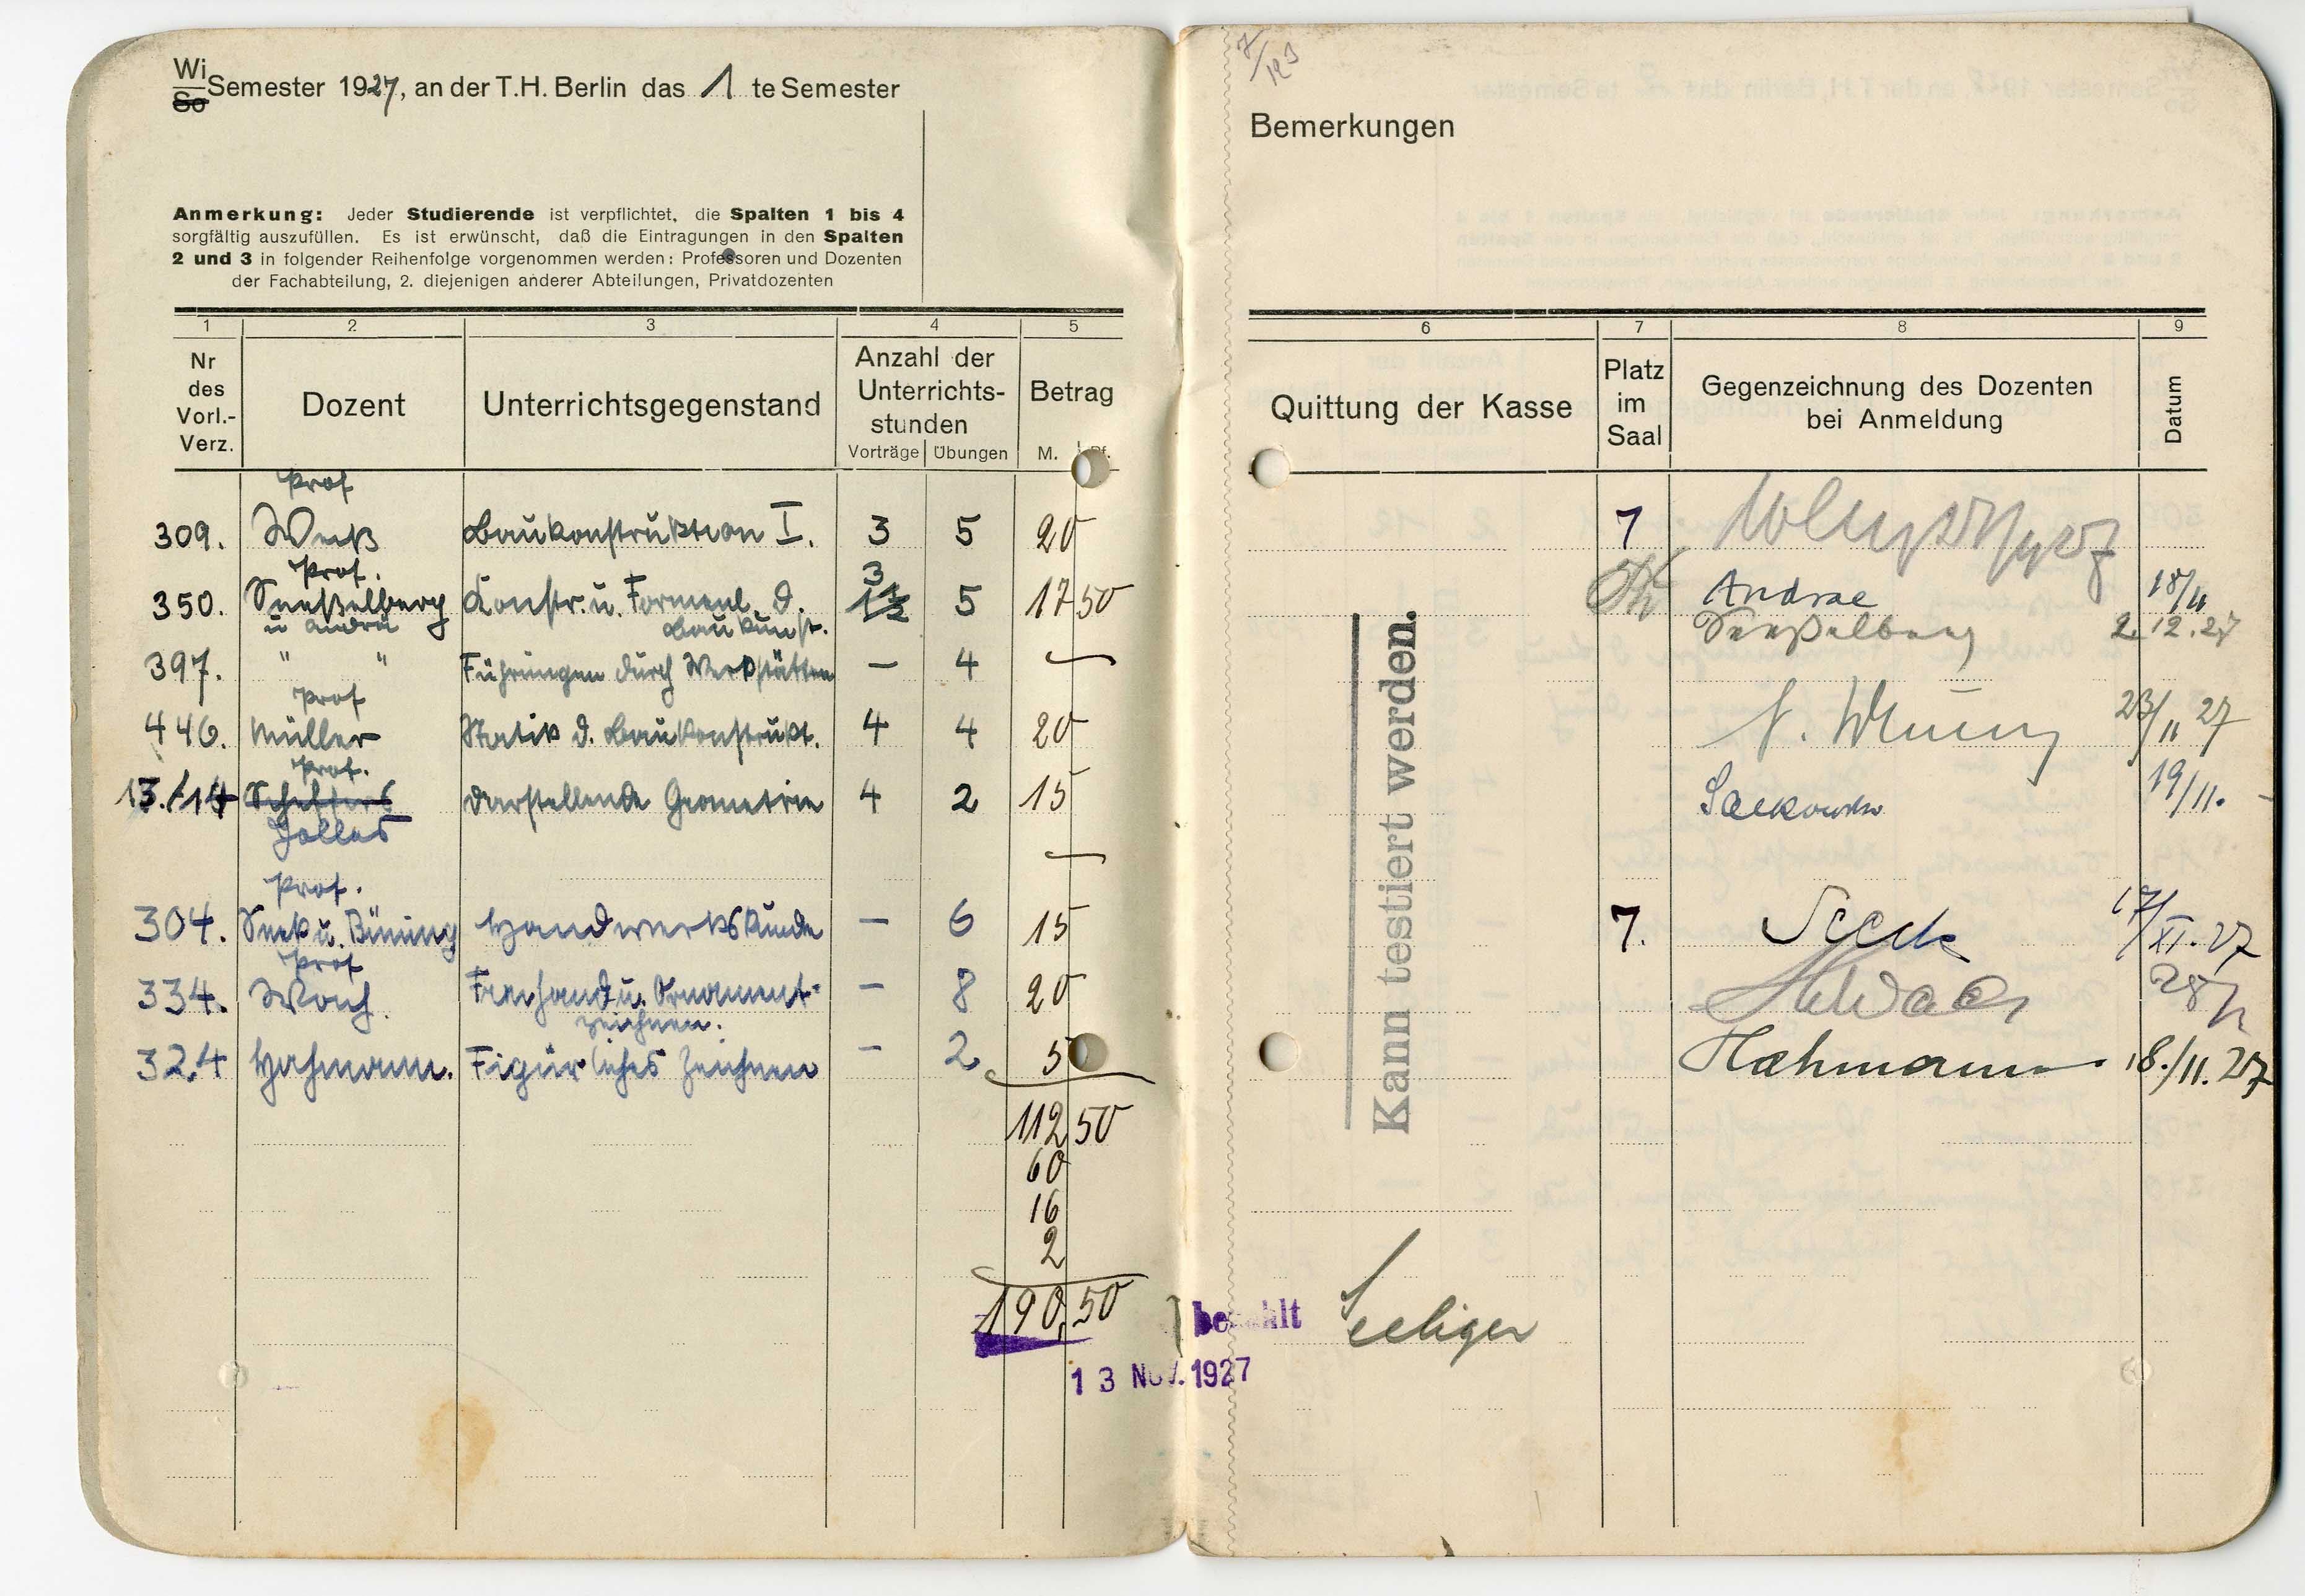 Wi
So Semester 1927, an der T.H. Berlin das 1 te Semester
Anmerkung: Jeder Studierende ist verpflichtet, die Spalten 1 bis 4
sorgfältig auszufüllen. Es ist erwünscht, daß die Eintragungen in den Spalten
2 und 3 in folgender Reihenfolge vorgenommen werden: Professoren und Dozenten
der Fachabteilung, 2. diejenigen anderer Abteilungen, Privatdozenten
1 2 3 4 5
Nr des Vorl.-Verz. Dozent Unterrichtsgegenstand Anzahl der Unterrichts-stunden Betrag
Vorträge Übungen M. Pf.
Prof
309. Weiß Baukonstruktion I. 3 5 20
Prof. 3
350. Seeßelberg Konstr. u. Formenl. d. 1½ 5 17 50
u Andrä Baukunst.
397. " " Führungen durch Werkstätten — 4 —
Prof
446. Müller Statik d. Baukonstrukt. 4 4 20
Prof.
13./14 Scheffers Darstellende Geometrie 4 2 15
Jolles
—
Prof.
304. Seek u. Büning Handwerkskunde — 6 15
Prof
334. Woch. Freihand u. Ornament- — 8 20
zeichnen.
324 Hahmann. Figürliches Zeichnen — 2 5
112 50
60
16
2
190,50
bezahlt
13 NOV. 1927
Bemerkungen
6 7 8 9
Quittung der Kasse Platz im Saal Gegenzeichnung des Dozenten bei Anmeldung Datum
7
Andrae 18/11
Seeßelberg 2.12.27
23/11 27
19/11.
7. Seeck 17/XI.27
28/
Hahmann 18./11.27
Kann testiert werden.
Seeliger